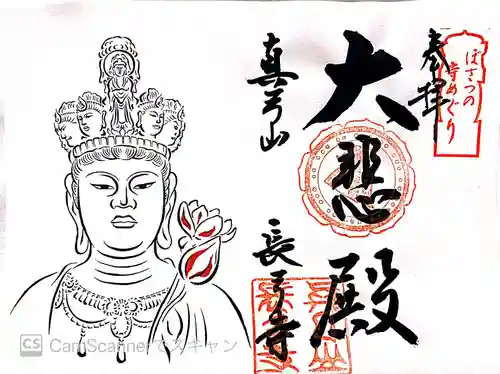 ぼさつの
寺めぐり
奉拝
大悲殿
真弓山
長弓寺
CS CamScannerでスキャン